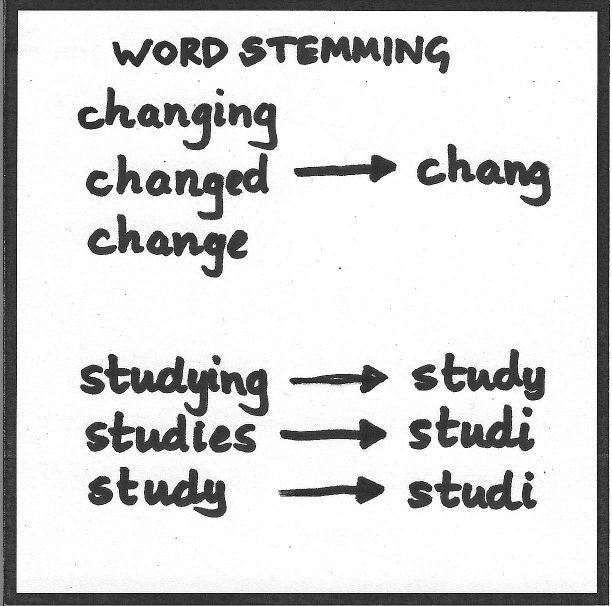 WORD STEMMING
changing
changed → chang
change
studying → study
studies → studi
study → studi